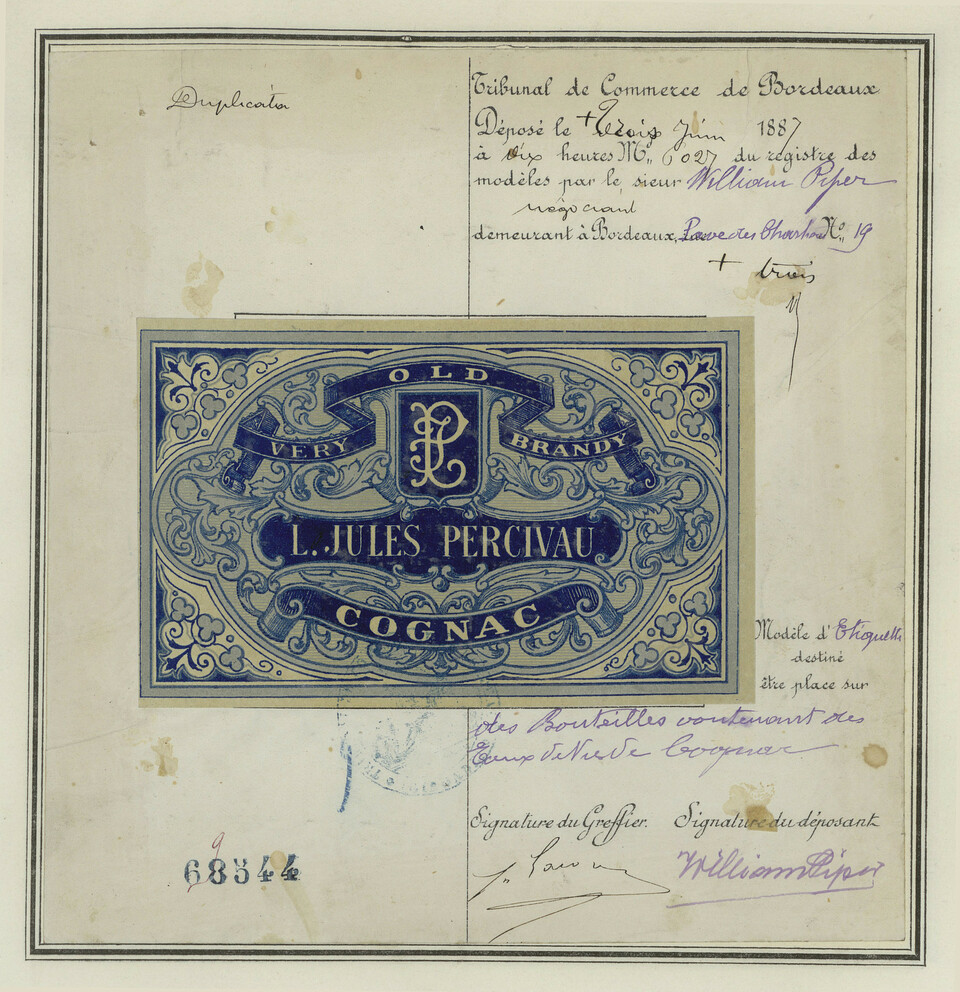 Duplicata
Tribunal de Commerce de Bordeaux
Déposé le + Trois Juin 1887
à dix heures M. N° 6027 du registre des
modèles par le sieur William Piper
négociant
demeurant à Bordeaux, Pavé des Chartrons N° 19
+ trois
OLD
VERY BRANDY
L. JULES PERCIVAU
COGNAC
Modèle d'Etiquette
destiné
être place sur
des Bouteilles contenant des
Eaux de Vie de Cognac
Signature du Greffier. Signature du déposant
William Piper
9
68544